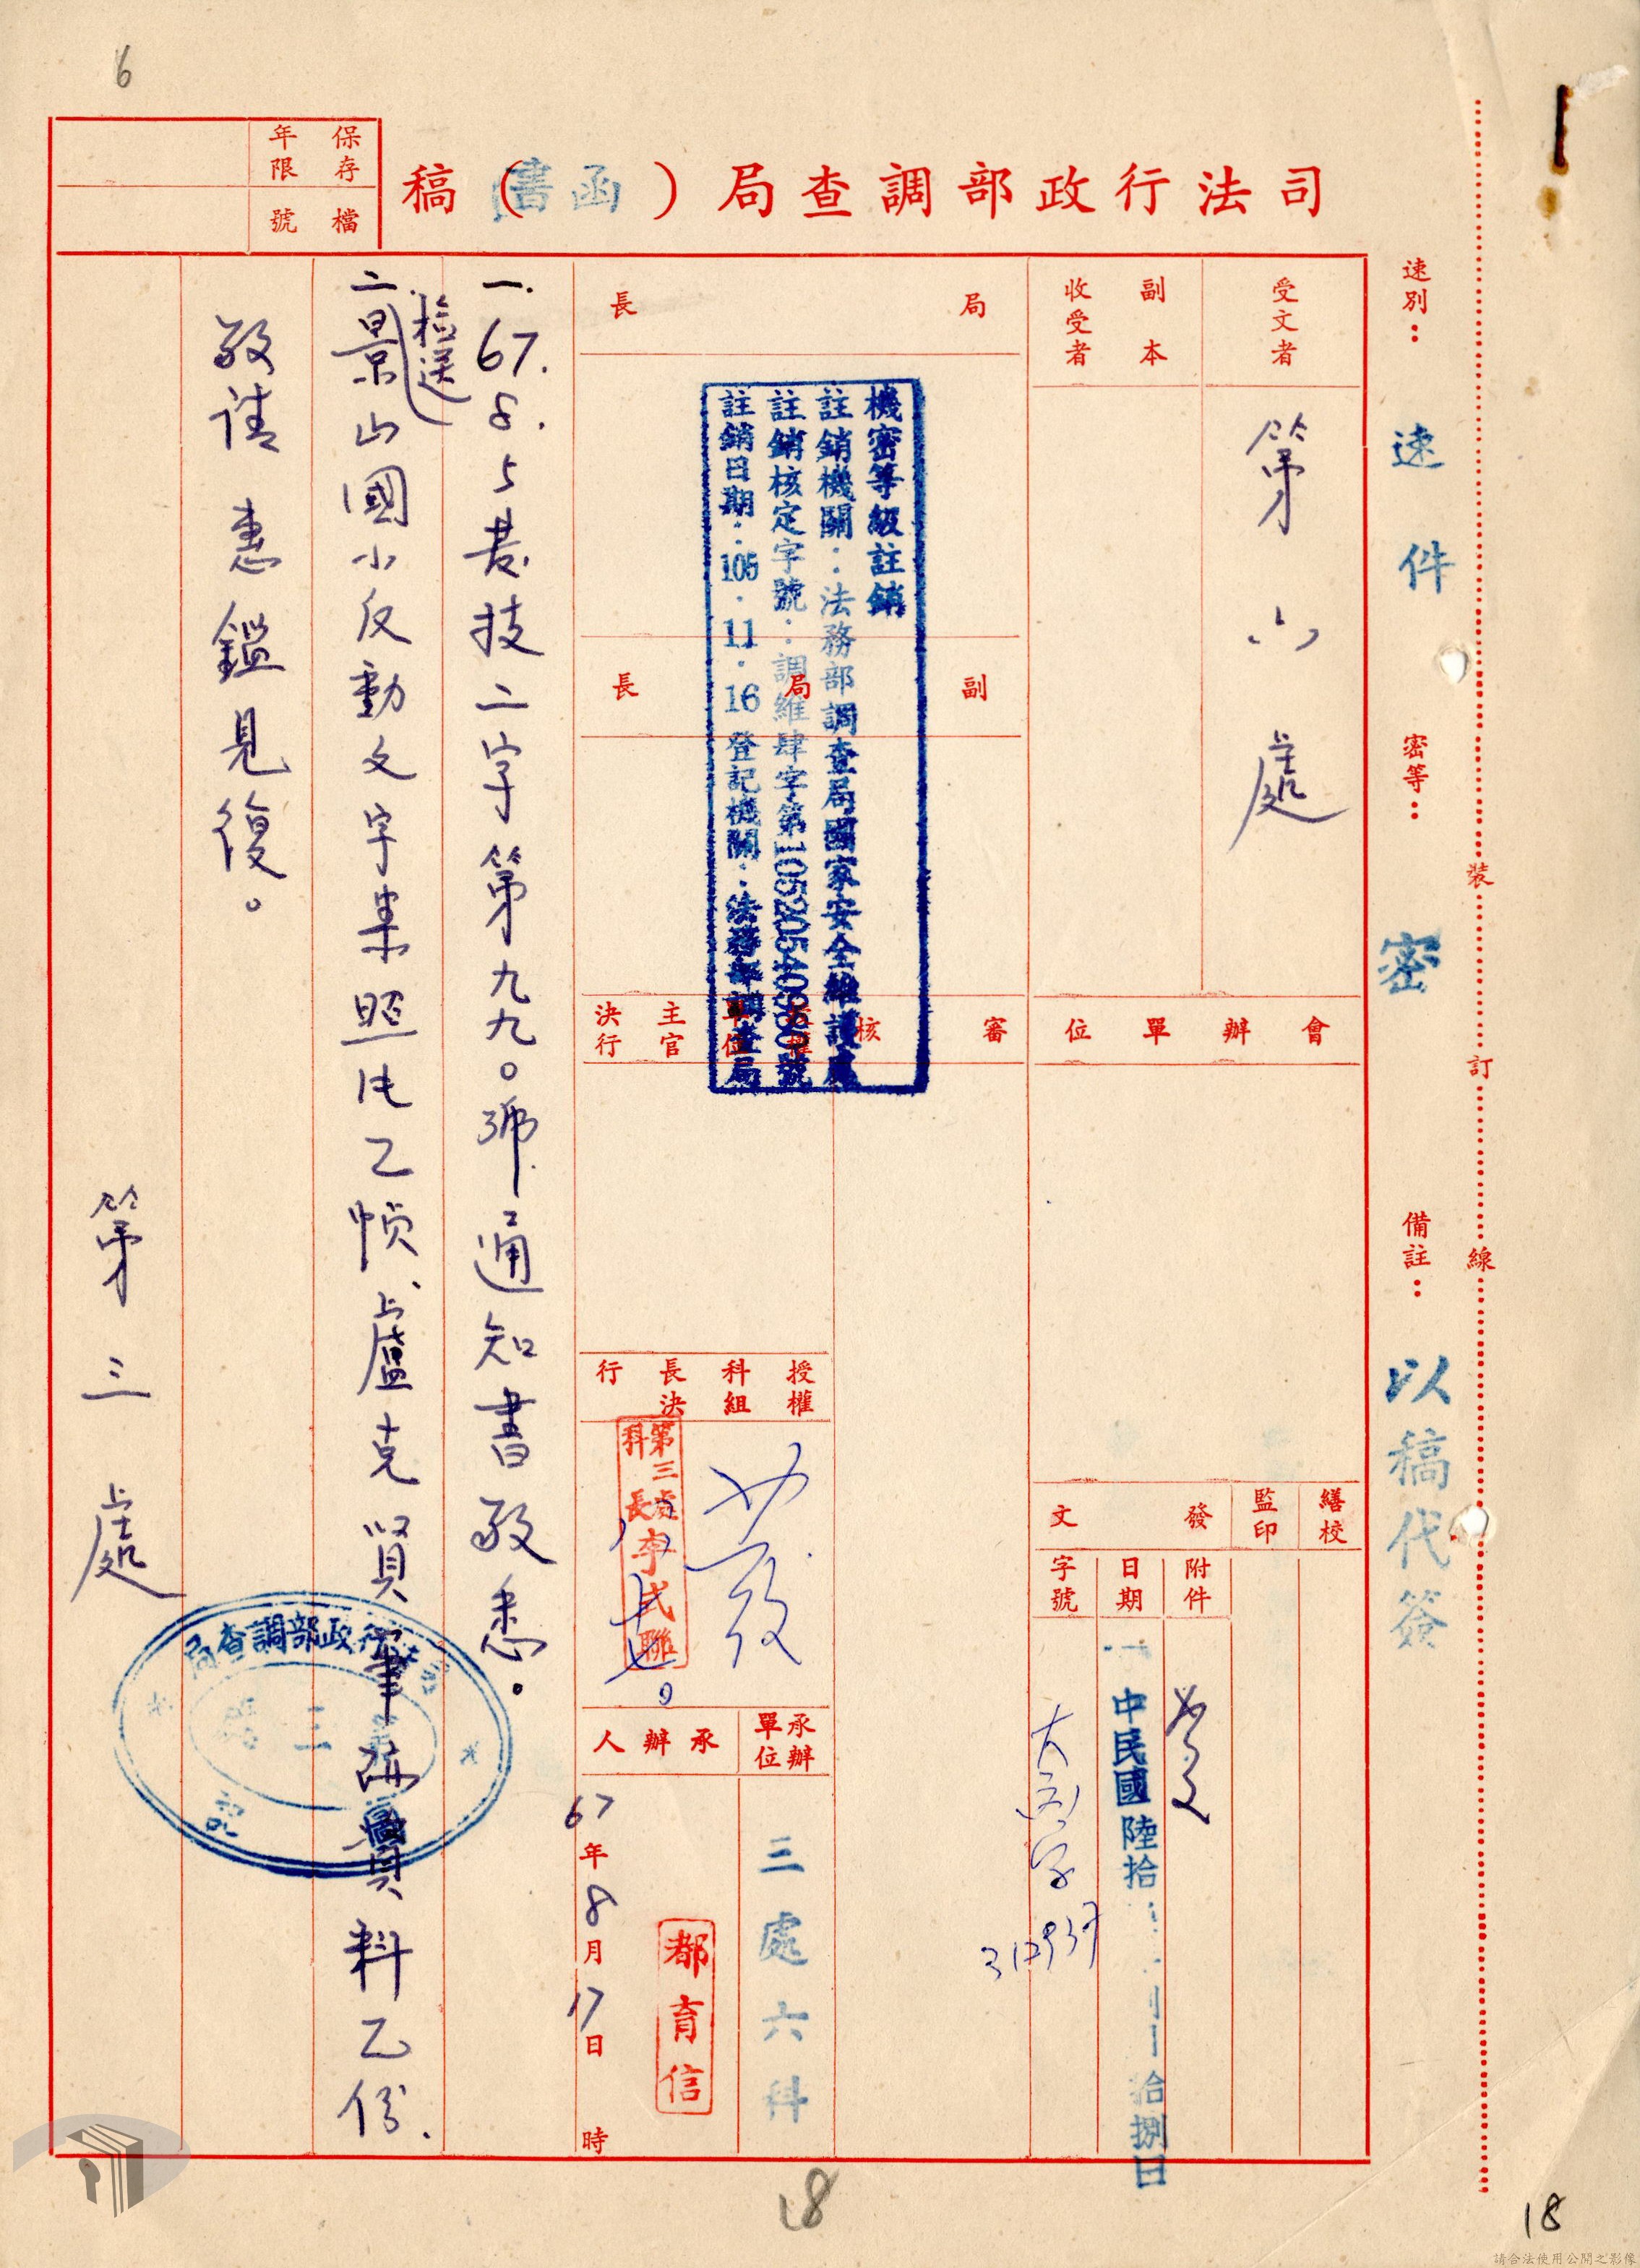 6
司法行政部調查局(函書)稿
保存年限
檔號
速別：速件
密等：密
備註：以稿代簽
裝訂線
受文者
第六處
副本收受者
會辦單位
繕校
監印
發文
附件
日期
字號
發文
中民國陸拾
拾捌日
312937
局長
副局長
審核
授權單位主官決行
授權科組長決行
第三處科長李武聯
承辦單位
三處六科
承辦人
都育信
67年8月17日時
機密等級註銷
註銷機關：法務部調查局國家安全維護處
註銷日期：105.11.16登記機關：法務部調查局
一.67.8.5基技二字第九九○號通知書敬悉。
二.檢送景山國小反動文字案照片乙幀、盧克賢筆跡資料乙份.
敬請惠鑑見復。
第三處
司法行政部調查局
18
18
請合法使用公開之影像